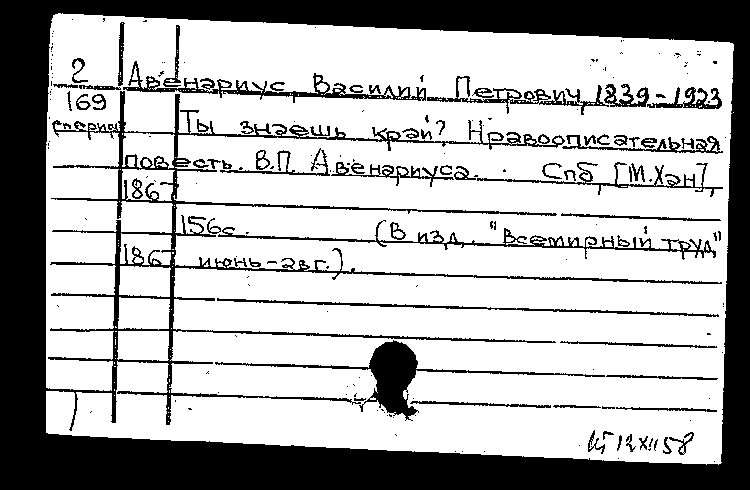 2 Авенариус, Василий Петрович, 1839-1923
169 Ты знаешь край? Нравоописательная
повесть. В.П. Авенариуса. Спб, [М.Хан],
1867
156с. (В изд. "Всемирный труд,"
1867 июнь-авг.).
12 XII 58